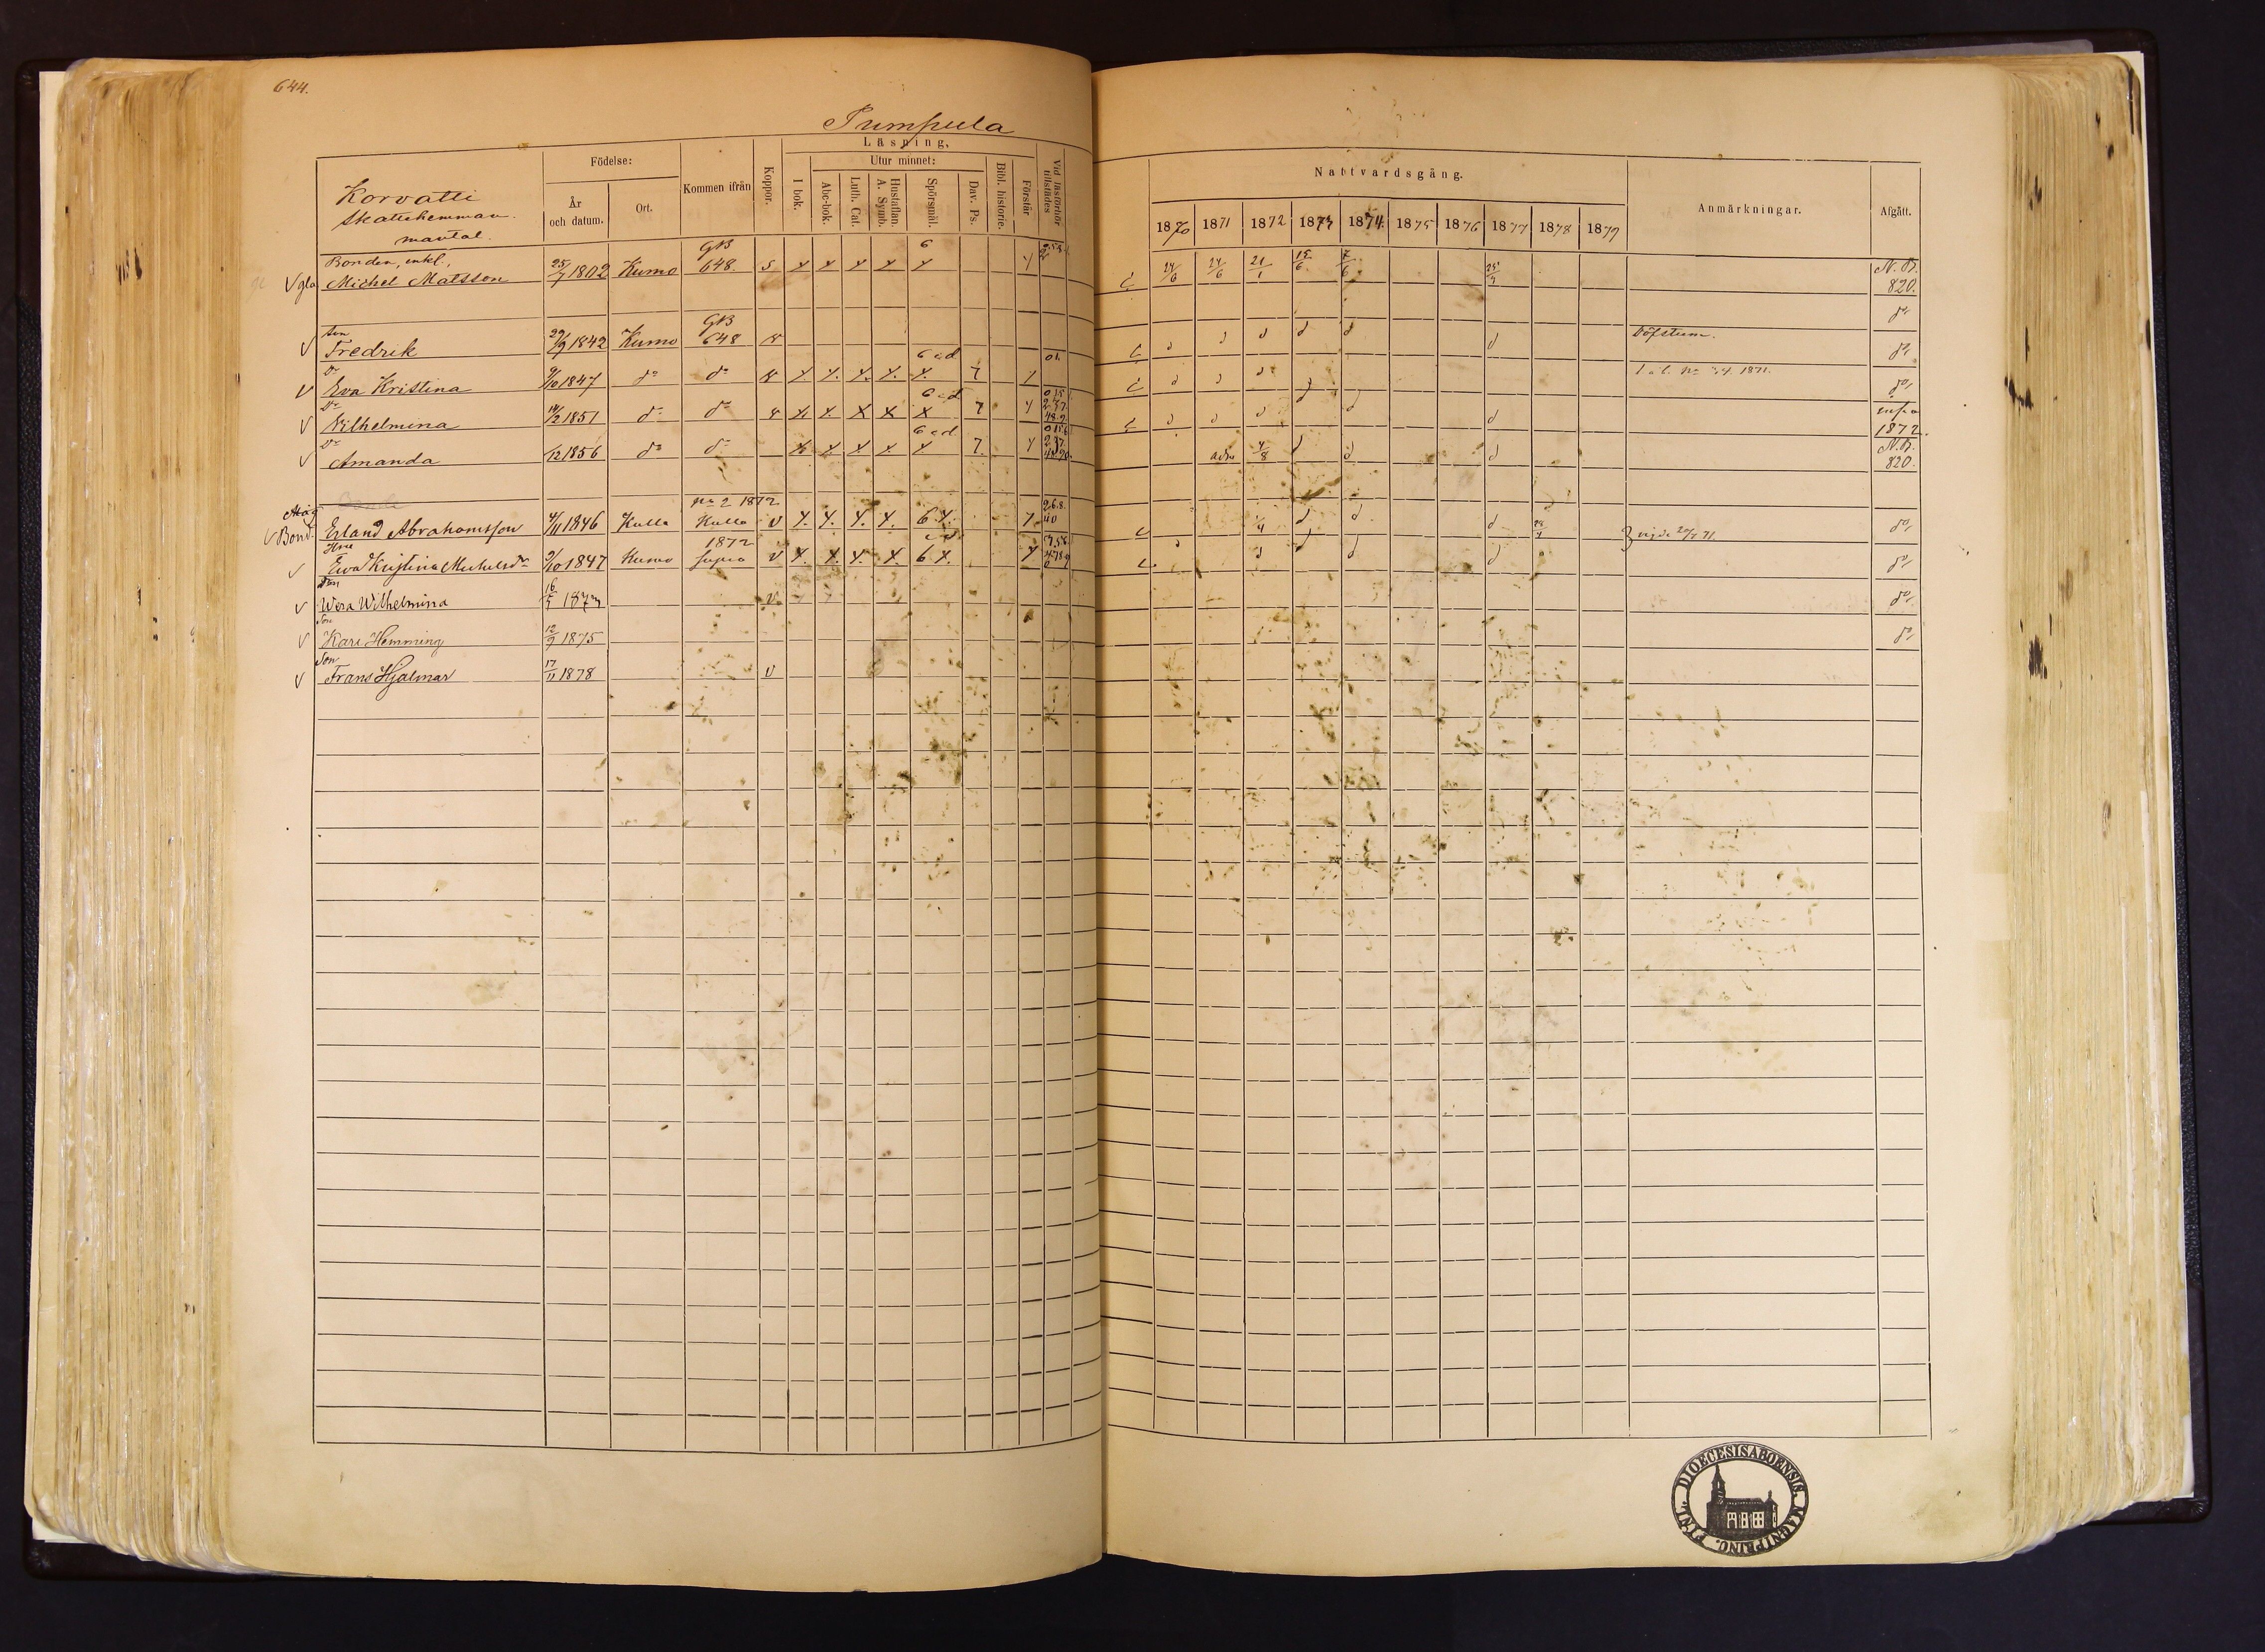 644.
Pumpula
Korvatti
Skattehemman.
mantal.
Födelse:
År och datum.
Ort.
Kommen ifrån
Koppor.
Läsning.
I bok.
Utur minnet:
Abc-bok.
Luth. Cat.
Hustaflan. A. Symb.
Spörsmål.
Dav. Ps.
Bibl. historie.
Förstår
Vid läsförhör tillstädes
Nattvardsgång.
1870 1871 1872 1873 1874 1875 1876 1877 1878 1879
Anmärkningar.
Afgått.
Bonden, enkl., GB 6
V gla Michel Matsson 25/7 1802 Kumo 648. 24/6 24/6 21/1 15/6 7/6 N. B. 820.
Son GB
V Fredrik 1842 Kumo 648 Döfstum. do
Dr 6 c.d
V Eva Kristina 9/10 1847 do do 7 do
Dr 6 c.d
V Vilhelmina 14/2 1851 do do 7 infra 1872.
Dr 6 c.d
V Amanda /12 1856 do do 7. adm 4/8 N. B. 820.
Måg no 2 1872
V Bond. Erland Abrahamsson 4/11 1846 Kulla Kulla V 6 do
Hu 1872
V Eva Kristina Michelsdr 9/10 1847 Kumo supra V 6 do
V Wera Wilhelmina 16/5 1873 V do
Son
V Karl Hemming 12/9 1875 do
Son
V Frans Hjalmar 17/11 1878 V
FINL. DIOECESIS ABOENSIS. MAGNI PRINC.